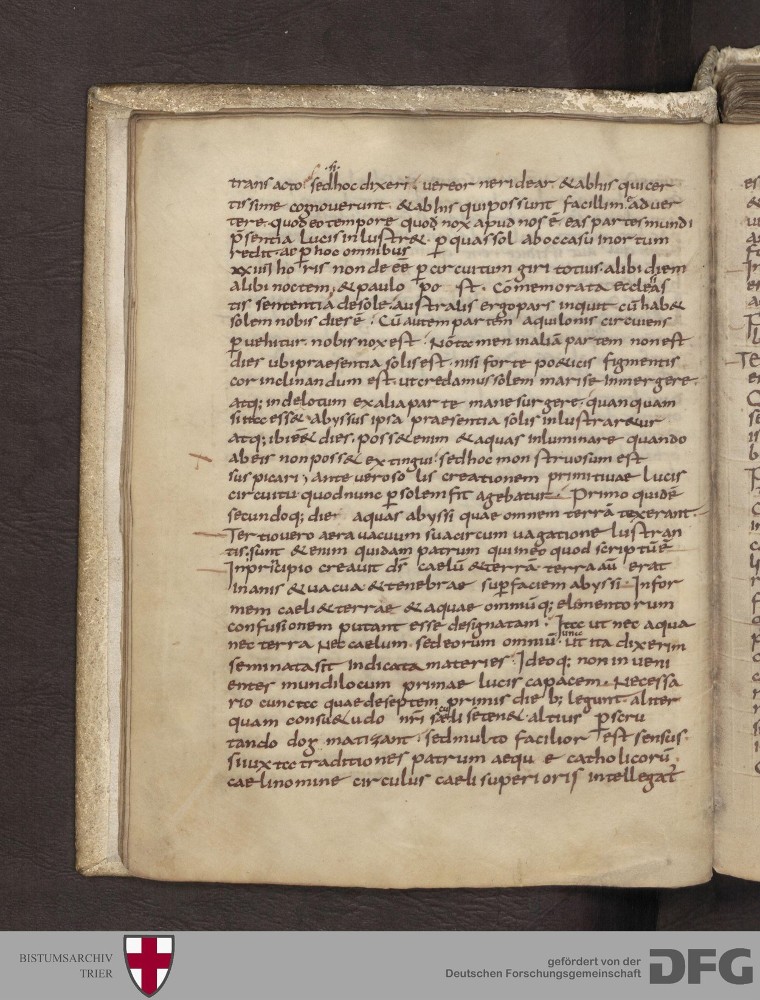 trans acto. sed hoc dixeri. vereor neridear. & abhis quicer
tissime cognoverunt. & abhis quipossunt facillim ad ver
tere. quod eo tempore quod nox apud nos ē. eas partes mundi
p̄sentia lucis inlustr&. p quas sol aboccasu inortum
redit. ac p hoc omnibus
xxiiii ho ris non de eē p circuitum giri totius. alibi diem
alibi noctem. & paulo po st. Cōmemorata eccleās
tis sententia desole. australis ergo pars inquit cū hab&
solem nobis dies ē. Cū autem partem aquilonis circuiens
puehitur. nobis nox est. Nō tamen in aliā partem non est
dies ubi praesentia solis est. nisi forte po&icis figmentis
cor inclinandum est. ut credamus solem mari se inmergere.
atq; inde lotum ex alia par te mane surgere. quanquam
si ita ess& abyssus ipsa praesentia solis inlustrar&ur
atq; ibi eē& dies. poss& enim & aquas inluminare quando
ab eis non poss& extingui. sed hoc monstruosum est
suspicari; ante vero so lis creationem primitivae lucis
circuitu quod nunc p solem fit agebatur. Primo quidē
secundoq; die aquas abyssi quae omnem terrā texerant.
Tertio vero aera vacuum sua circum vagatione lustran
tis. sunt & enim quidam patrum qui in eo quod scriptū ē
In principio creavit ds̄ caelū & terrā. terra aū erat
inanis & vacua & tenebrae sup faciem abyssi. Infor
mem caeli & terrae & aquae omniūq; elimentorum
confusionem putant esse designatam. Ita ut nec aqua
nec terra nec caelum. sed eorum omniū. ut ita dixerim
tunc
seminata sit indicata materies. Ideoq; non in veni
entes mundi locum primae lucis capacem. Necessa
rio cuncta quae de septem primis dieb; legunt. aliter
quam consu&udo nr̄i saeculi se ten& altius pscru
tando dogmatizant. sed multo facilior est sensus.
si iuxta traditiones patrum aequ e catholicorū
caeli nomine circulus caeli superioris intellegat
BISTUMSARCHIV
TRIER
gefördert von der
Deutschen Forschungsgemeinschaft
DFG